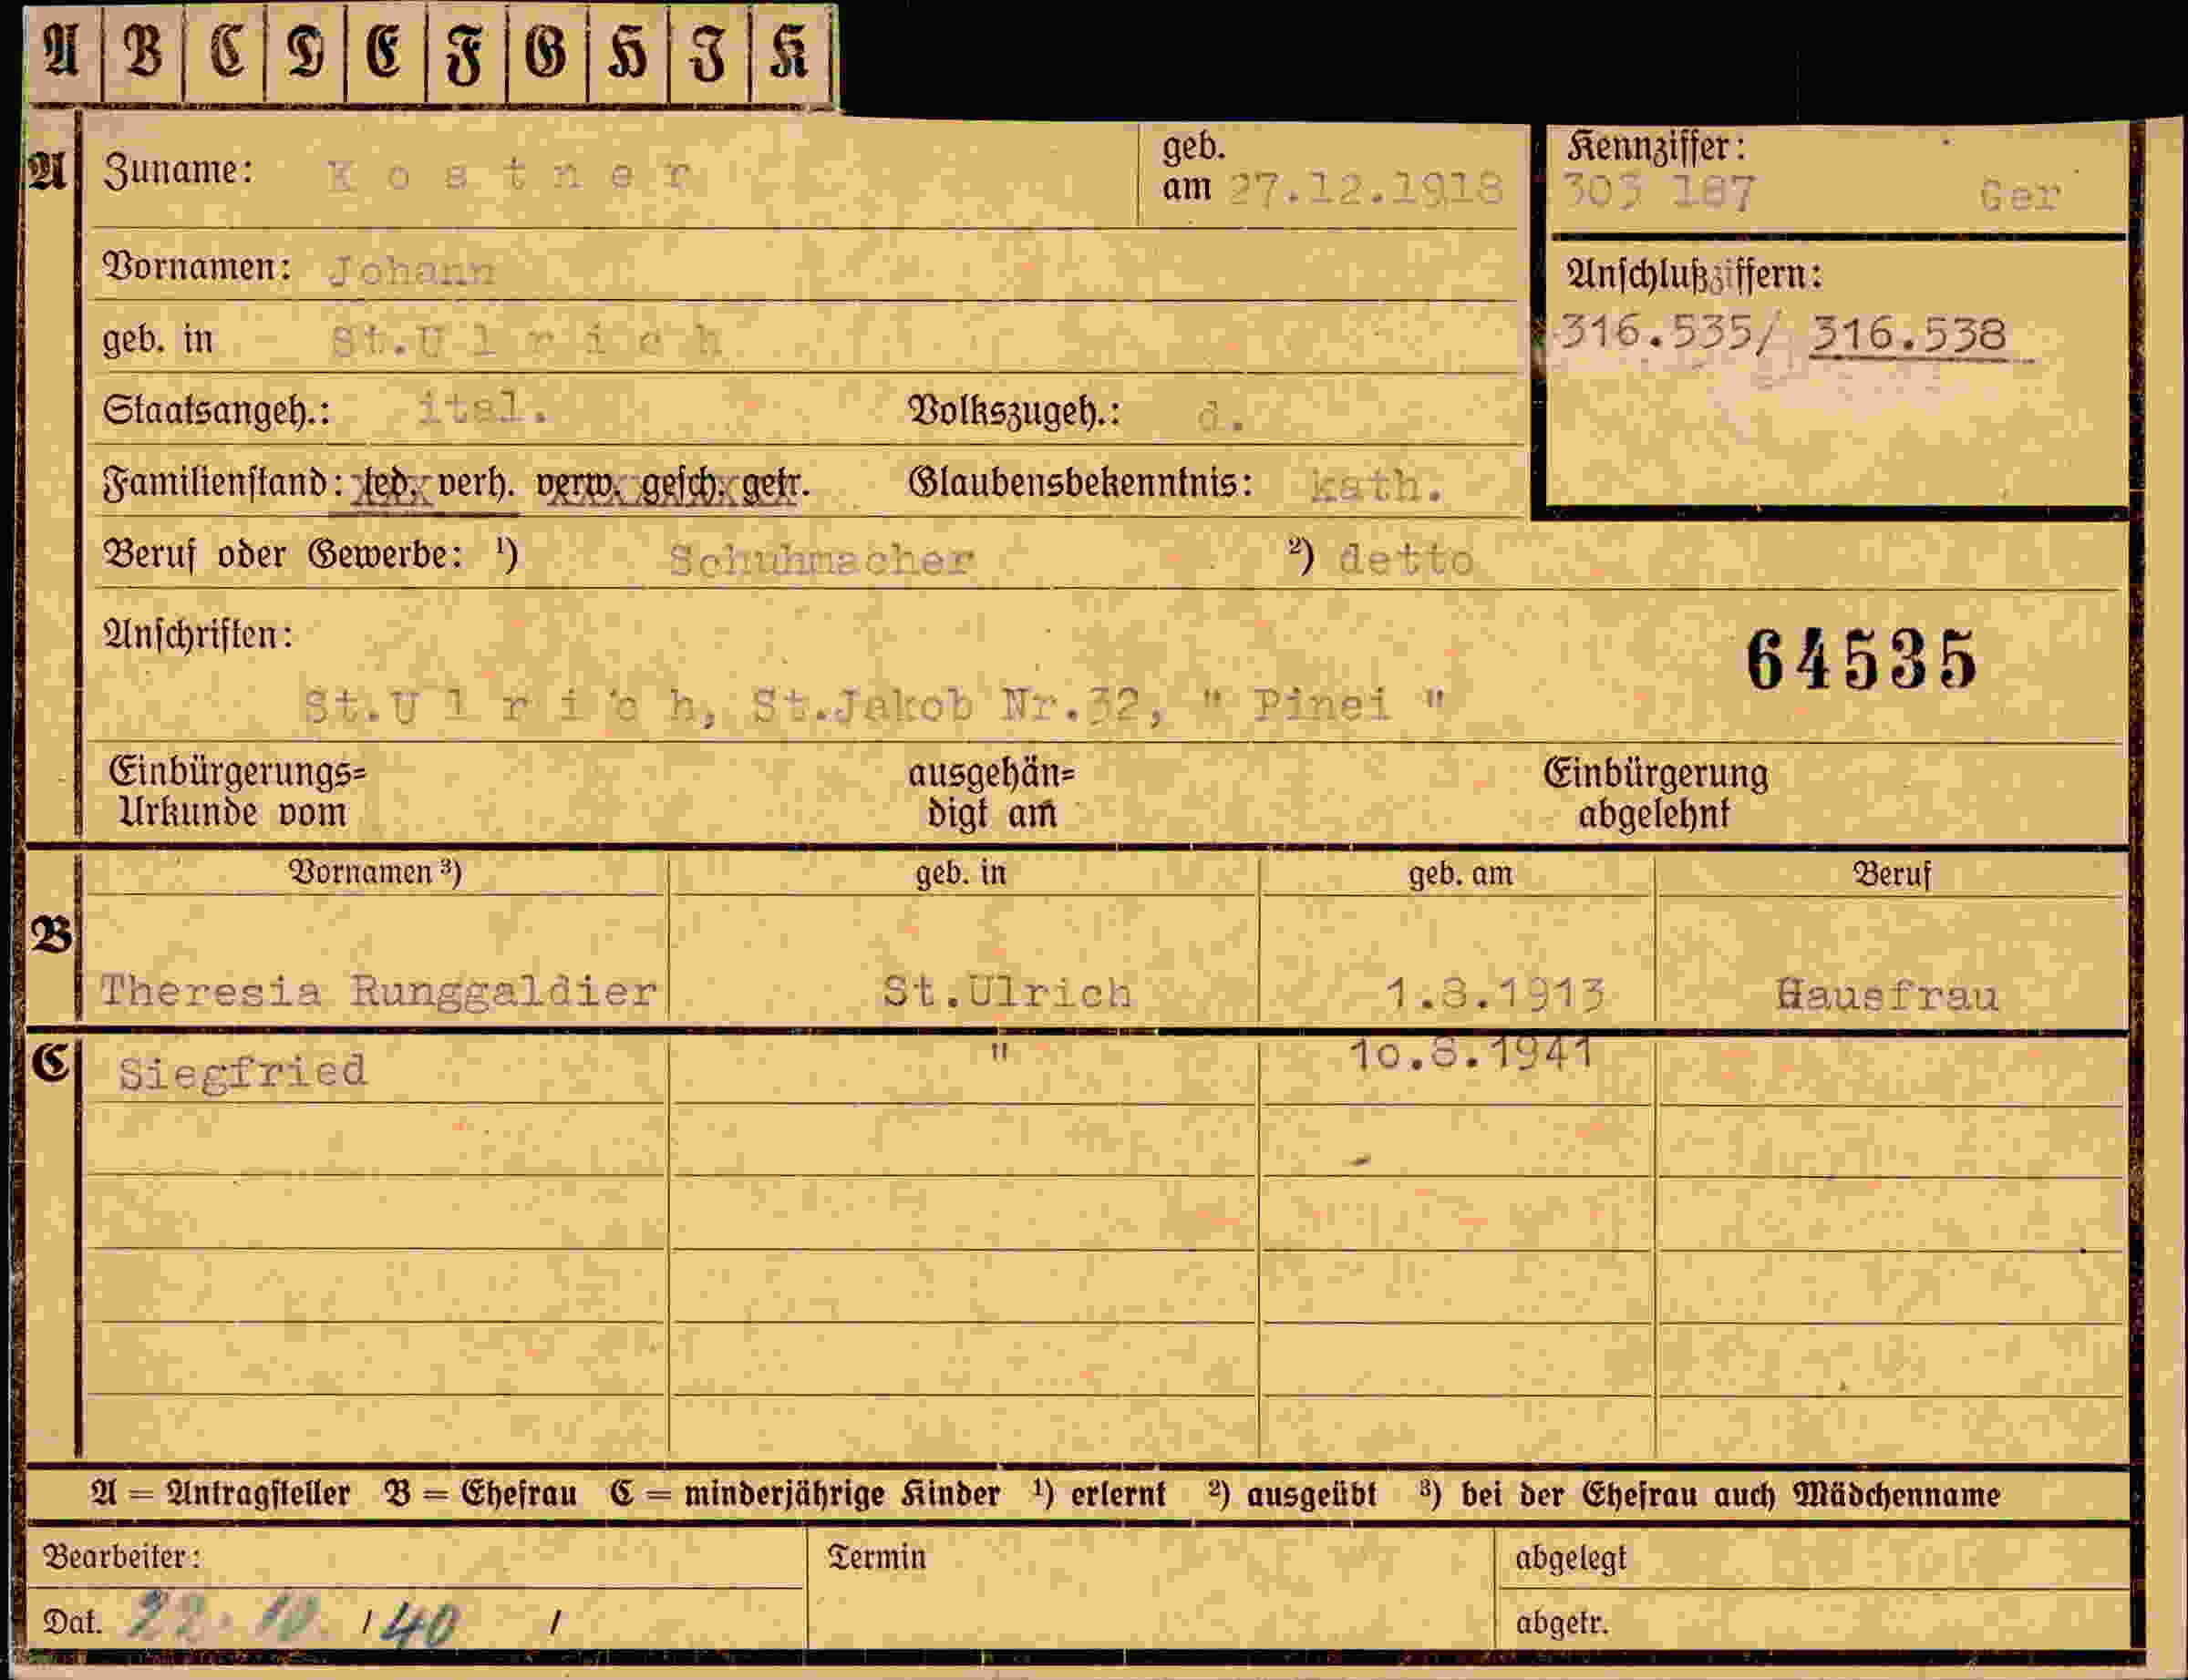 A B C D E F G H I K
A Zuname: Kostner geb. am 27.12.1918
Kennziffer: 303 187 Ger
Vornamen: Johann
Anschlußziffern:
316.535/ 316.538
geb. in St.Ulrich
Staatsangeh.: ital. Volkszugeh.: d.
Familienstand: led. verh. verw. gesch. getr. Glaubensbekenntnis: kath.
Beruf oder Gewerbe: ¹) Schuhmacher ²) detto
Anschriften:
64535
St.Ulrich, St.Jakob Nr.32, " Pinei "
Einbürgerungs= Urkunde vom ausgehän= digt am Einbürgerung abgelehnt
Vornamen ³) geb. in geb. am Beruf
B
Theresia Runggaldier St.Ulrich 1.8.1913 Hausfrau
C Siegfried " 10.8.1941
A = Antragsteller B = Ehefrau C = minderjährige Kinder ¹) erlernt ²) ausgeübt ³) bei der Ehefrau auch Mädchenname
Bearbeiter: Termin abgelegt
Dat. 22. 10. / 40 / abgetr.